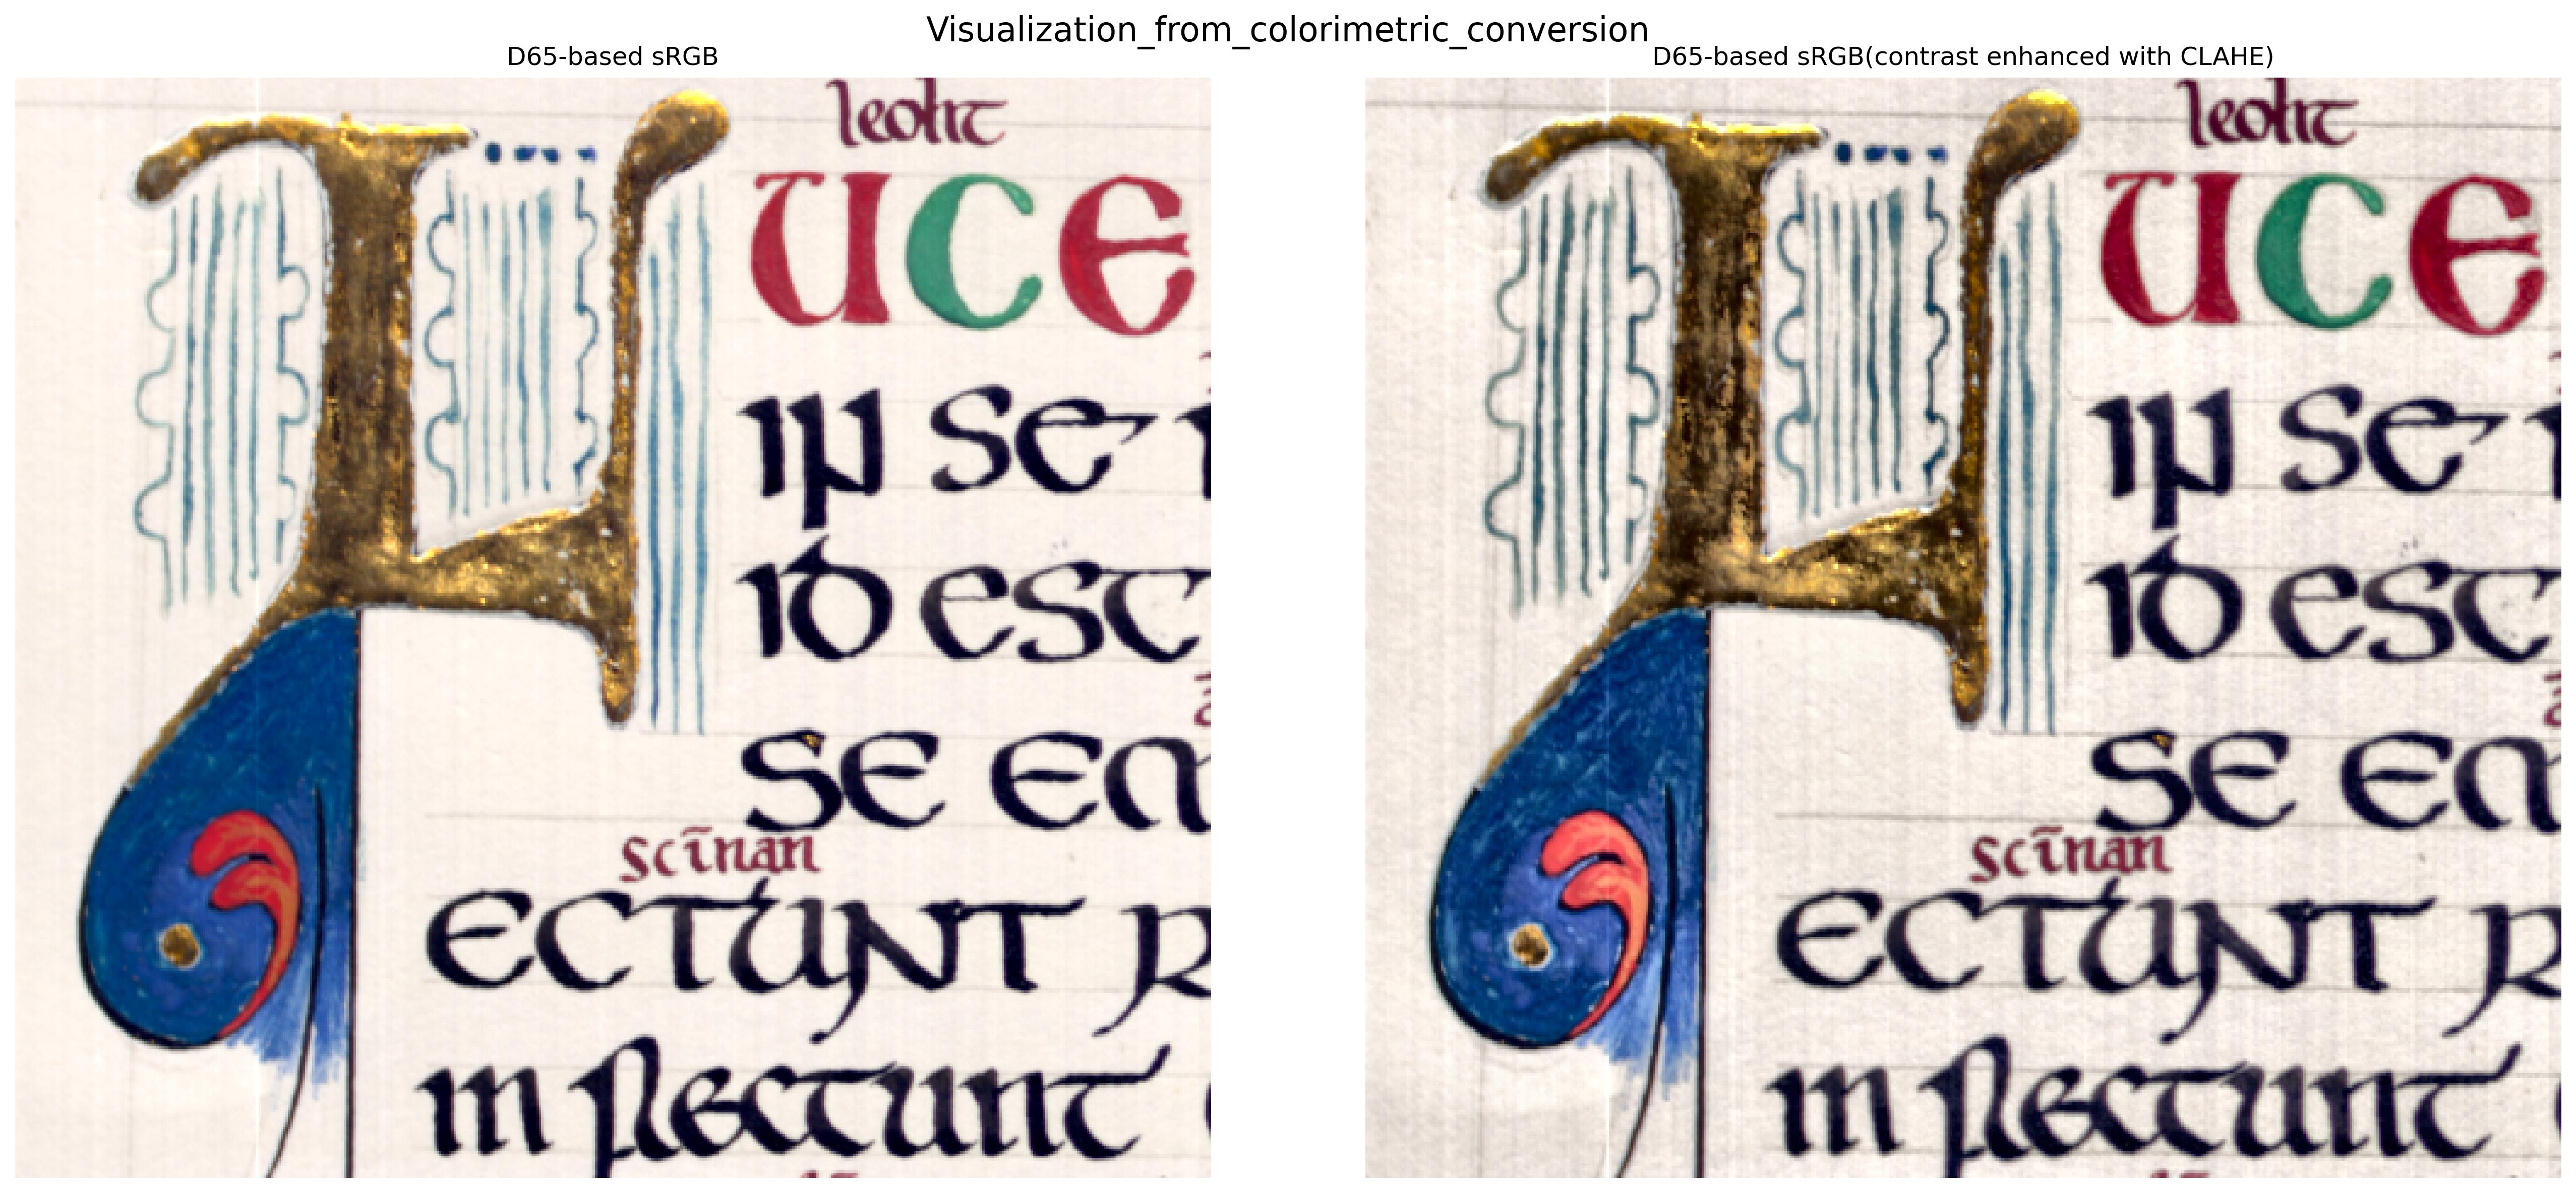 Visualization_from_colorimetric_conversion
D65-based sRGB
leoht
UCE
in se
id est
se
scīnan
ECTUNT R
in flectunt
D65-based sRGB(contrast enhanced with CLAHE)
leoht
UCE
in se
id est
se
scīnan
ECTUNT R
in flectunt